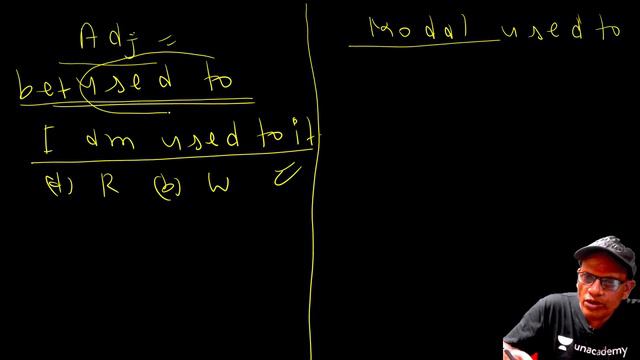 Adj =
be + used to
I am used to it
(a) R (b) W ✓
Modal used to
unacademy